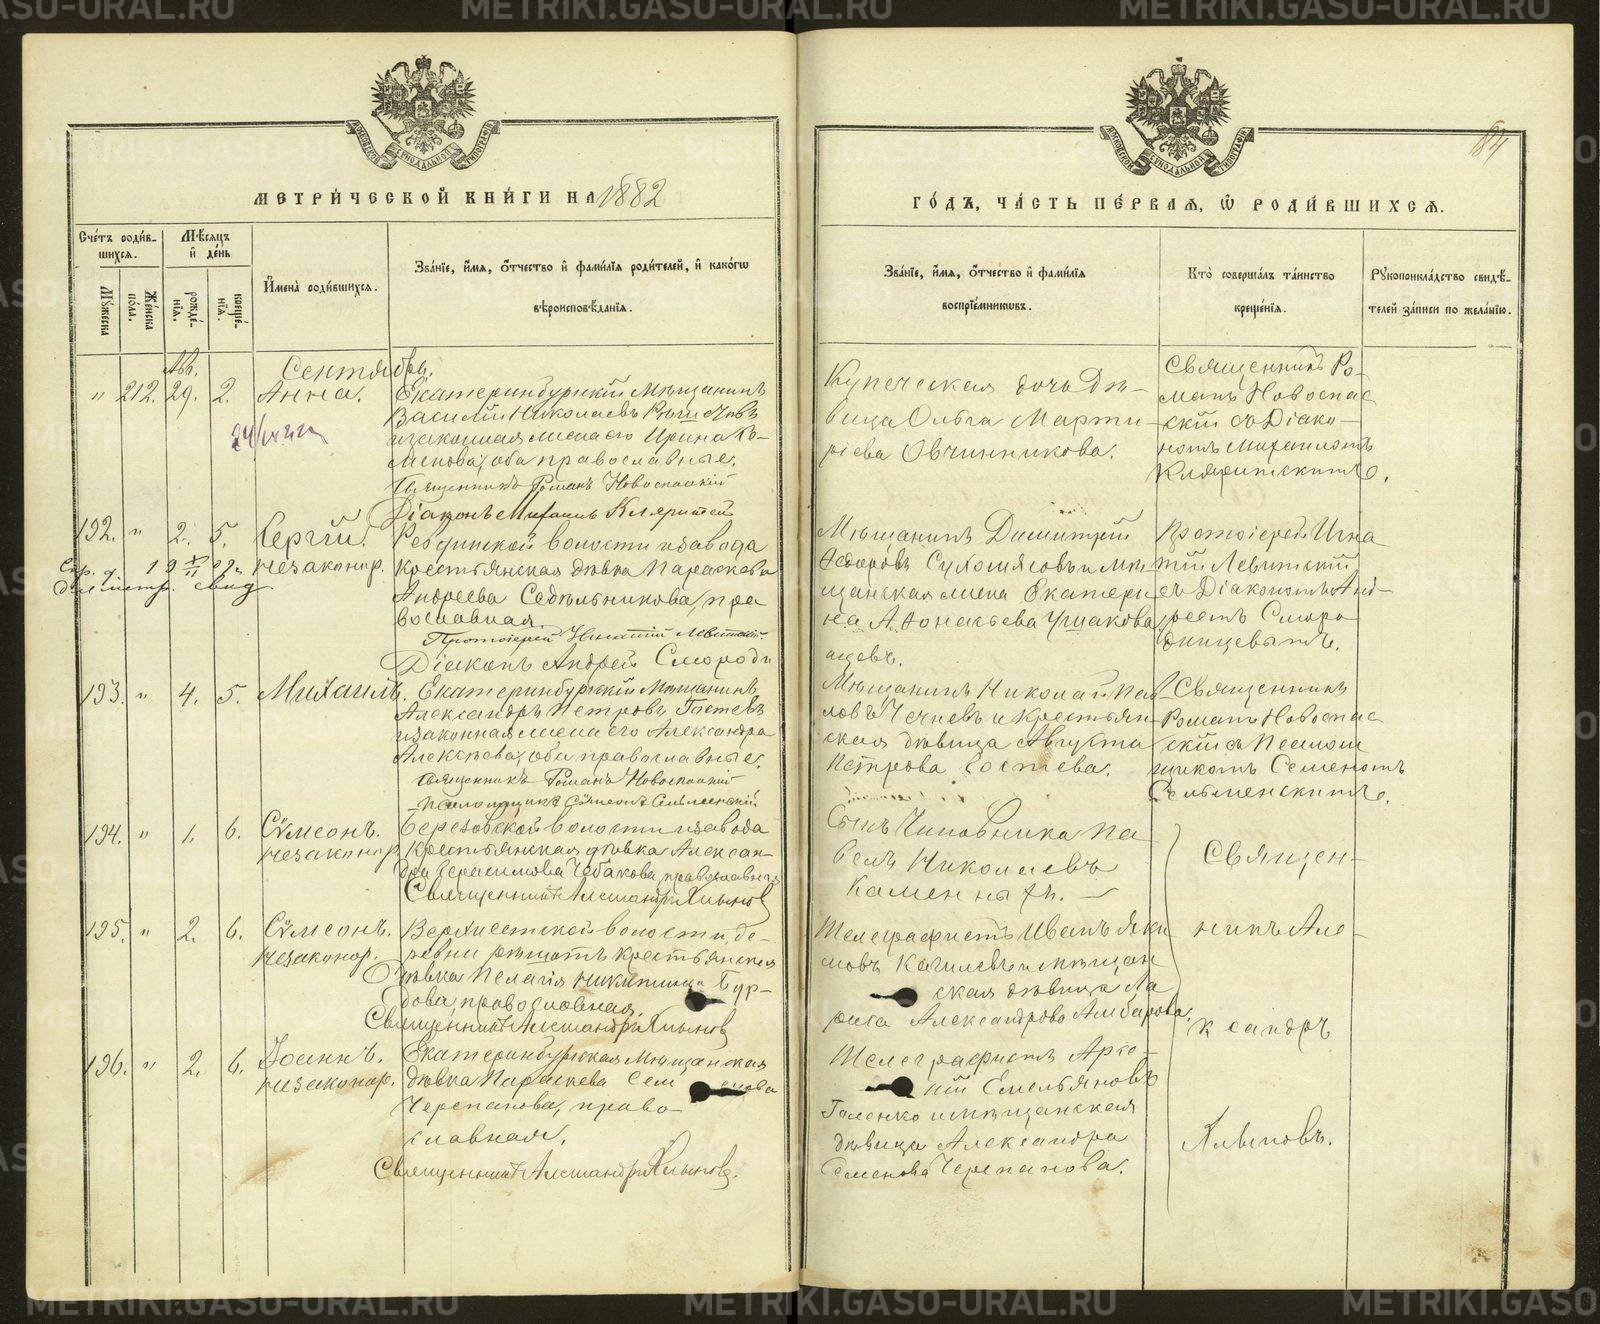 METRIKI.GASO-URAL.RU
МЕТРИ́ЧЕСКОЙ КНИ́ГИ НА 1882
ГО́ДЪ, ЧА́СТЬ ПЕ́РВАЯ, Ѽ РОДИ́ВШИХСѦ.
84
Сче́тъ роди́в-
шихся.
Мѣ́сяцъ
и҆ де́нь
И҆мена̀ роди́вшихся.
Зва́нїе, и҆́мя, ѻ҆́тчество и҆ фами́лїя роди́телей, и҆ како́гѡ
вѣроисповѣ́данїя.
Мꙋ́жеска
Же́нска
по́ла.
рожде́-
нїя.
креще́-
нїя.
Зва́нїе, и҆́мя, ѻ҆́тчество и҆ фами́лїя
воспрїе́мникѡвъ.
Кто̀ соверша́лъ та́инство
креще́нїя.
Рꙋкоприкла́дство свидѣ́-
телей за́писи по жела́нїю.
Авг. Сентябрь.
" 212. 29. 2. Анна.
Екатеринбургскій Мѣщанинъ
Василій Николаевъ
и законная жена его Ирина
оба православные.
Священникъ Романъ Новоспасскій
Діаконъ Михаилъ
Купеческая дочь Дѣ-
вица Ольга Марти-
ріева Овчинникова.
Священникъ Ро-
манъ Новоспас
скій съ Діако-
номъ Михаиломъ
192. " 2. 5. Сергій.
незаконнор.
Ревдинской волости и завода
крестьянская дѣвка Параскева
Андреева Седѣльникова, пра
вославная.
Протоіерей Игнатій Левитскій
Діаконъ Андрей Смороди
Мѣщанинъ Димитрій
Ѳедоровъ Сухомясовъ и мѣ-
щанская жена Екатери-
на Аѳонасьева Ушакова
Протоіерей Игна
тій Левитскій
съ Діакономъ Анд-
реемъ Сморо
динцевымъ.
193. " 4. 5. Михаилъ.
Екатеринбургскій Мѣщанинъ
Александръ Петровъ Гостевъ
и законная жена его Александра
Алексѣева, оба православные.
Священникъ Романъ Новоспасскій
Псаломщикъ Сѵмеонъ Сельменскій
Мѣщанинъ Николай Пав-
ловъ и Крестьян-
ская дѣвица Августа
Петрова Гостева.
Священникъ
Романъ Новоспас
скій съ Псалом
щикомъ Семеномъ
Сельменскимъ.
194. " 1. 6. Сѵмеонъ.
незаконнор.
Березовской волости и завода
Крестьянская дѣвка Алексан-
дра Герасимова Чебакова, православная
Священникъ Александръ Хлыновъ
Сынъ Чиновника Па
велъ Николаевъ
Каменныхъ.
Священ-
195. " 2. 6. Сѵмеонъ.
незаконнор.
Верхисетской волости, де-
ревни Рѣшотъ Крестьянская
Дѣвка Пелагія Никитина Бур-
дова православная.
Священникъ Александръ Хлыновъ
Телеграфистъ Иванъ Яки
мовъ и мѣщан
ская дѣвица Ла
риса Александрова Амбарова.
никъ Але-
ксандръ
196. " 2. 6. Іоаннъ.
незаконнор.
Екатеринбургская Мѣщанская
дѣвка Параскева Семенова
Черепанова, право
славная.
Священникъ Александръ Хлыновъ.
Телеграфистъ Арсе-
ній Емельяновъ
Галенко и мѣщанская
дѣвица Александра
Семенова Черепанова.
Хлыновъ.